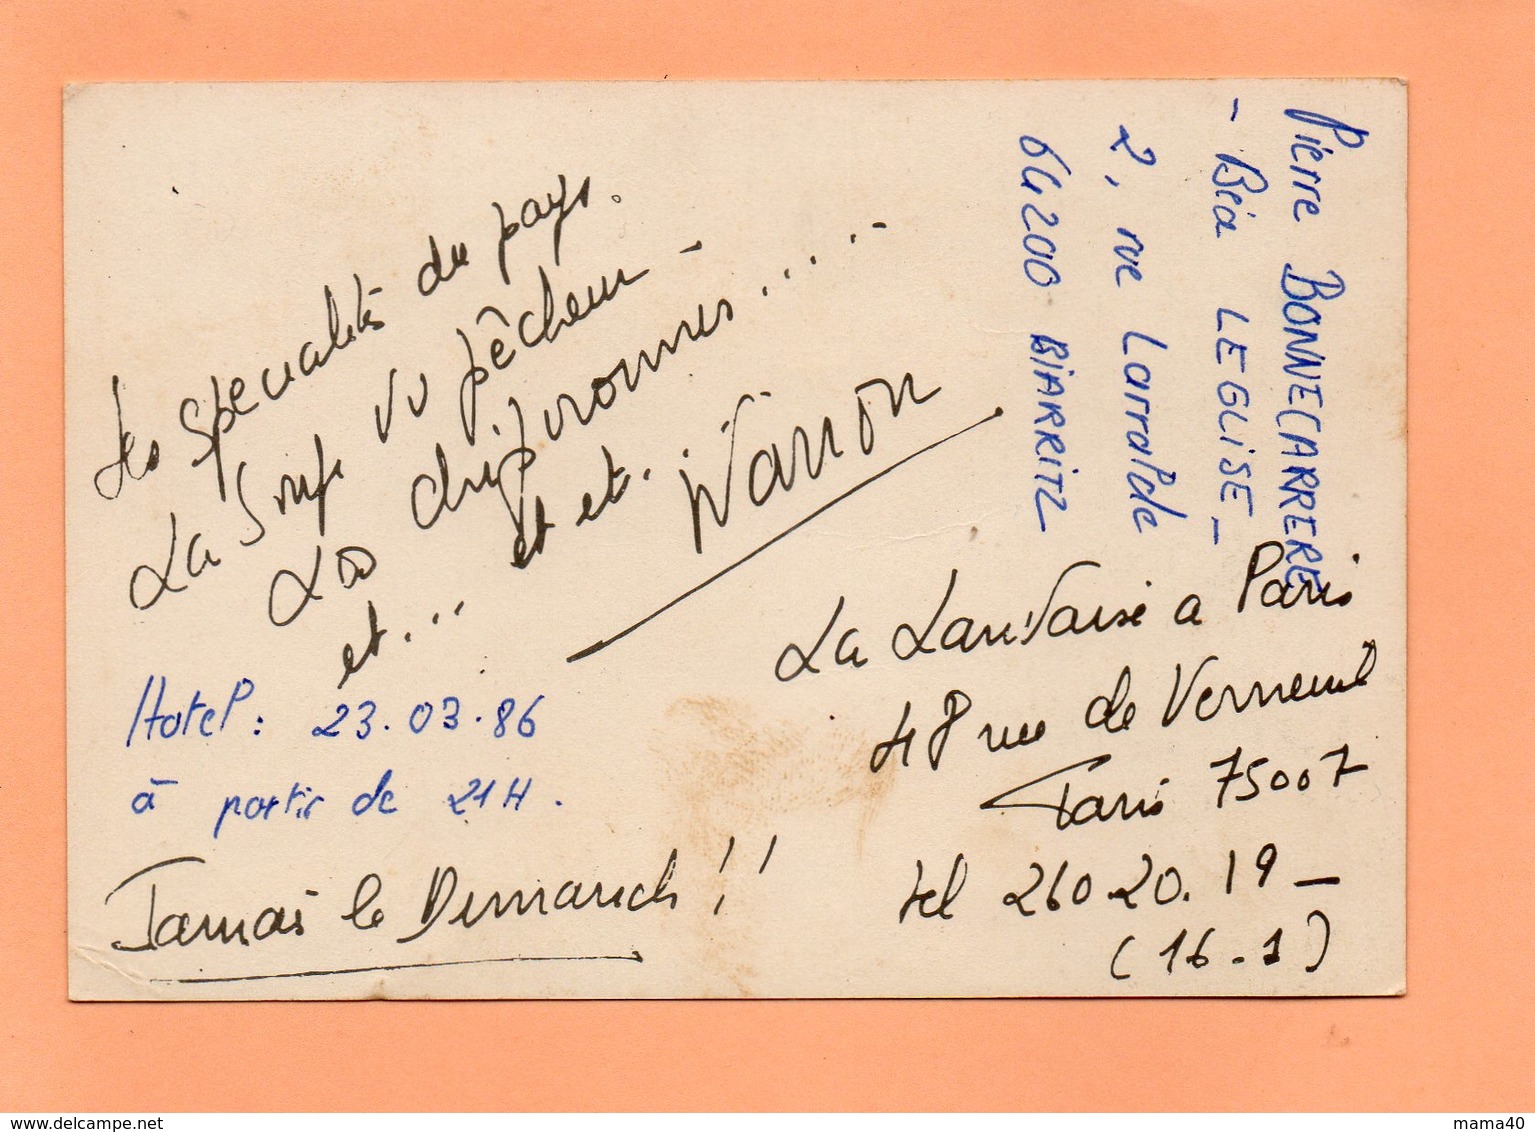 Les Spécialités du pays.
La Soupe du pêcheur -
Les chipironnes......
et... et et...
Warion
Hotel : 23.03.86
à partir de 21H.
Jamais le Dimanche !!
Pierre BONNECARRERE
- Béa LEGLISE -
2, rue Larralde
64200 BIARRITZ
La à Paris
48 rue de Verneuil
Paris 75007
tel 260.20.19 -
(16.1)
www.delcampe.net
mama40